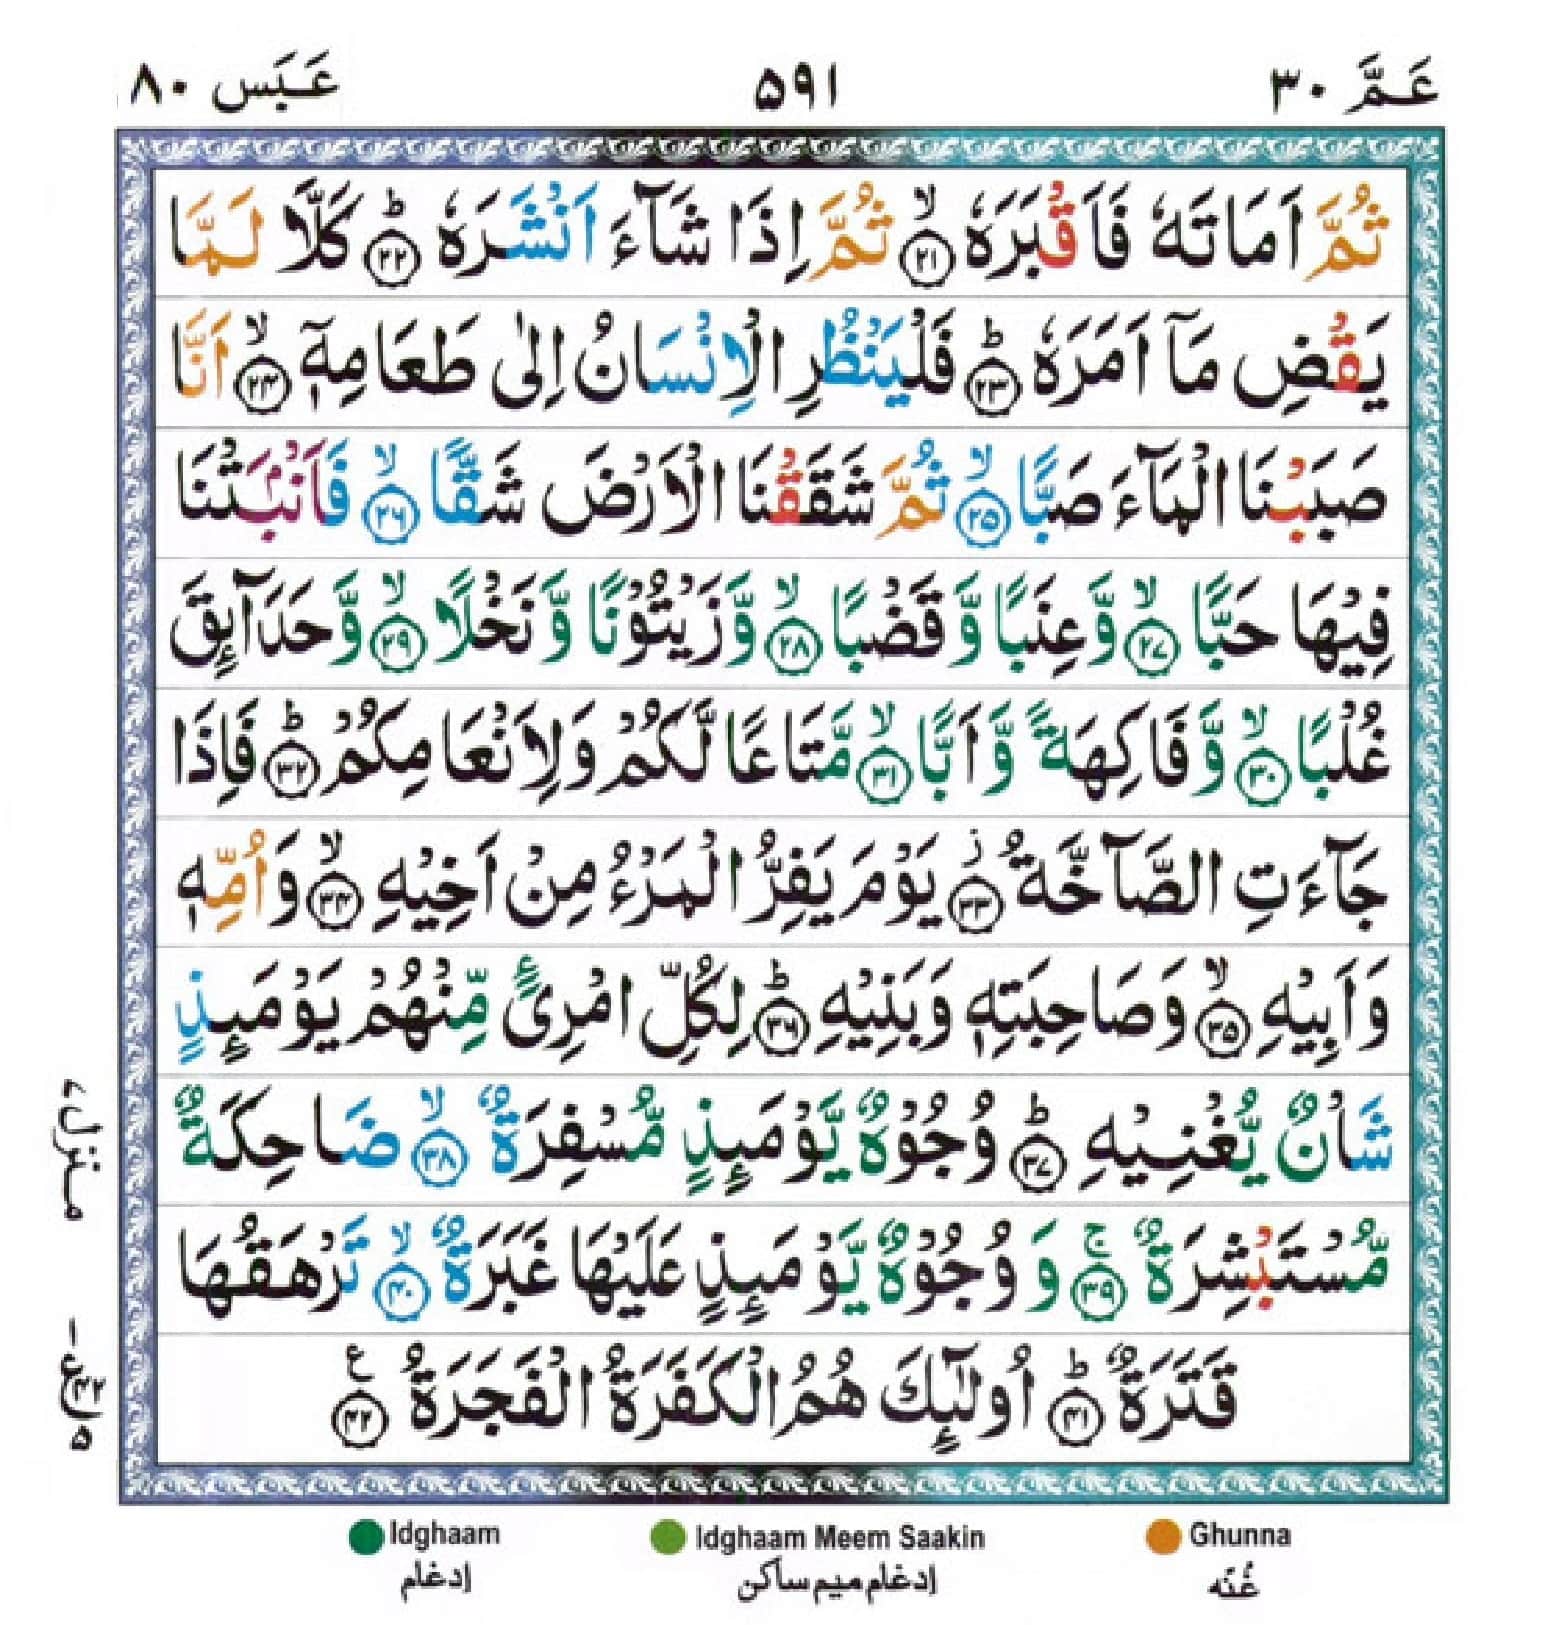 عَمَّ ۳۰
۵۹۱
عَبَسَ ۸۰
ثُمَّ اَمَاتَهٗ فَاَقْبَرَهٗ ۙ﴿۲۱﴾ ثُمَّ اِذَا شَآءَ اَنْشَرَهٗ ؕ﴿۲۲﴾ كَلَّا لَمَّا
يَقْضِ مَاۤ اَمَرَهٗ ؕ﴿۲۳﴾ فَلْيَنْظُرِ الْاِنْسَانُ اِلٰى طَعَامِهٖۤ ۙ﴿۲۴﴾ اَنَّا
صَبَبْنَا الْمَآءَ صَبًّا ۙ﴿۲۵﴾ ثُمَّ شَقَقْنَا الْاَرْضَ شَقًّا ۙ﴿۲۶﴾ فَاَنْۢبَتْنَا
فِيْهَا حَبًّا ۙ﴿۲۷﴾ وَّعِنَبًا وَّ قَضْبًا ۙ﴿۲۸﴾ وَّزَيْتُوْنًا وَّ نَخْلًا ۙ﴿۲۹﴾ وَّ حَدَآئِقَ
غُلْبًا ۙ﴿۳۰﴾ وَّ فَاكِهَةً وَّ اَبًّا ۙ﴿۳۱﴾ مَّتَاعًا لَّكُمْ وَلِاَنْعَامِكُمْ ؕ﴿۳۲﴾ فَاِذَا
جَآءَتِ الصَّآخَّةُ ؗ﴿۳۳﴾ يَوْمَ يَفِرُّ الْمَرْءُ مِنْ اَخِيْهِ ۙ﴿۳۴﴾ وَ اُمِّهٖ
وَ اَبِيْهِ ۙ﴿۳۵﴾ وَ صَاحِبَتِهٖ وَ بَنِيْهِ ؕ﴿۳۶﴾ لِكُلِّ امْرِئٍ مِّنْهُمْ يَوْمَئِذٍ
شَاْنٌ يُّغْنِيْهِ ؕ﴿۳۷﴾ وُجُوْهٌ يَّوْمَئِذٍ مُّسْفِرَةٌ ۙ﴿۳۸﴾ ضَاحِكَةٌ
مُّسْتَبْشِرَةٌ ۚ﴿۳۹﴾ وَ وُجُوْهٌ يَّوْمَئِذٍ عَلَيْهَا غَبَرَةٌ ۙ﴿۴۰﴾ تَرْهَقُهَا
قَتَرَةٌ ؕ﴿۴۱﴾ اُولٰٓئِكَ هُمُ الْكَفَرَةُ الْفَجَرَةُ ﴿۴۲﴾ ع
منزل ۷
Idghaam
Idghaam Meem Saakin
Ghunna
إدغام
إدغام ميم ساكن
غُنّه